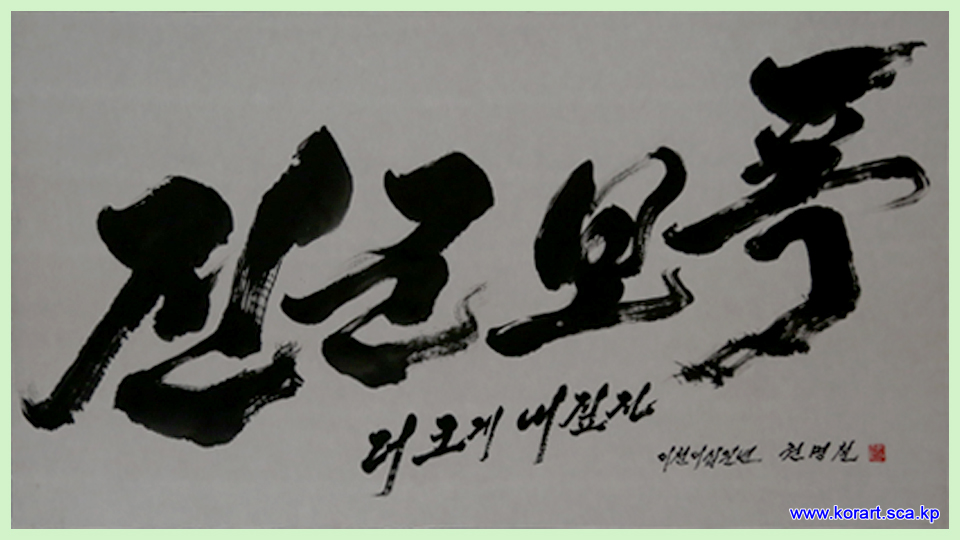 진군보폭
더 크게 내짚자
이천이십일년
www.korart.sca.kp